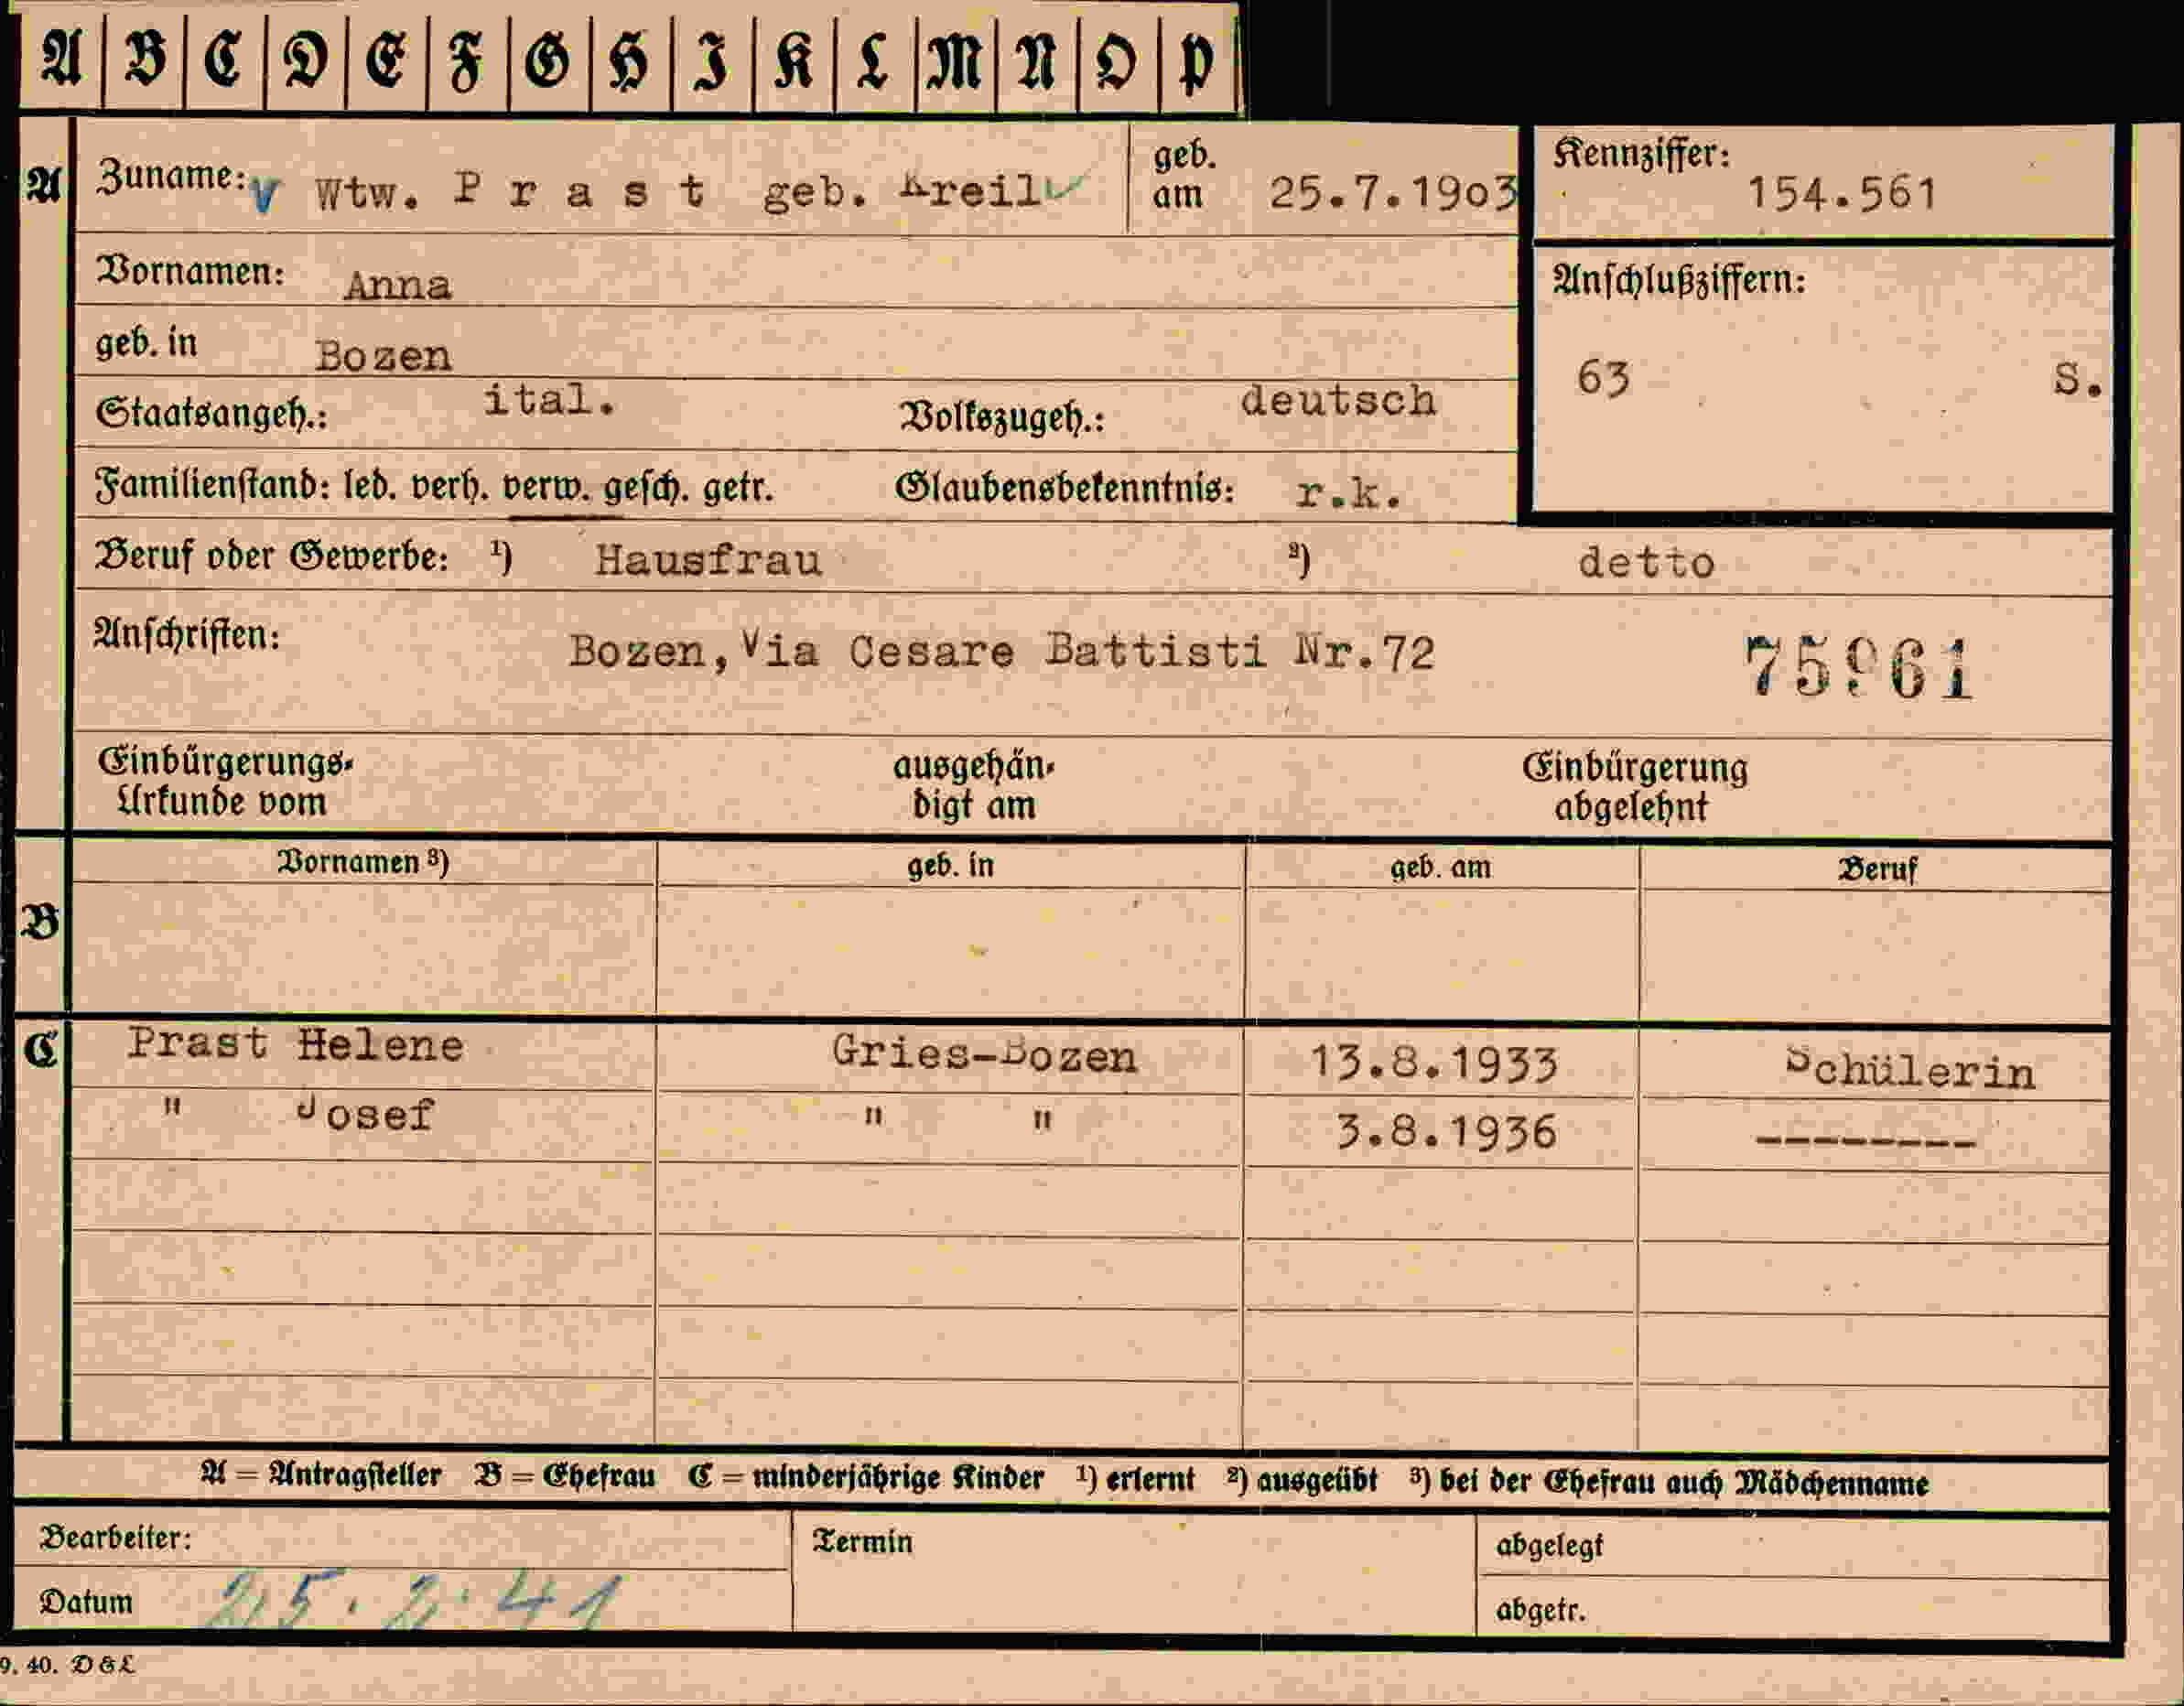 A B C D E F G H I K L M N O P
A Zuname: V Wtw. P r a s t geb. Kreil geb. am 25.7.19o3 Kennziffer: 154.561
Vornamen: Anna Anschlußziffern:
geb. in Bozen
63 S.
Staatsangeh.: ital. Volkszugeh.: deutsch
Familienstand: led. verh. verw. gesch. getr. Glaubensbekenntnis: r.k.
Beruf oder Gewerbe: ¹) Hausfrau ²) detto
Anschriften: Bozen,Via Cesare Battisti Nr.72
Einbürgerungs- ausgehän- Einbürgerung
Urkunde vom digt am abgelehnt
Vornamen ³) geb. in geb. am Beruf
B
C Prast Helene Gries-Bozen 13.8.1933 Schülerin
" Josef " " 3.8.1936 --------
A = Antragsteller B = Ehefrau C = minderjährige Kinder ¹) erlernt ²) ausgeübt ³) bei der Ehefrau auch Mädchenname
Bearbeiter: Termin abgelegt
Datum 25.2.41 abgetr.
9. 40. D & L